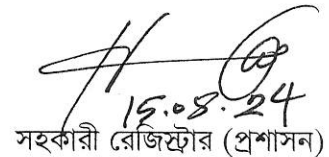 15.08.24
সহকারী রেজিস্ট্রার (প্রশাসন)